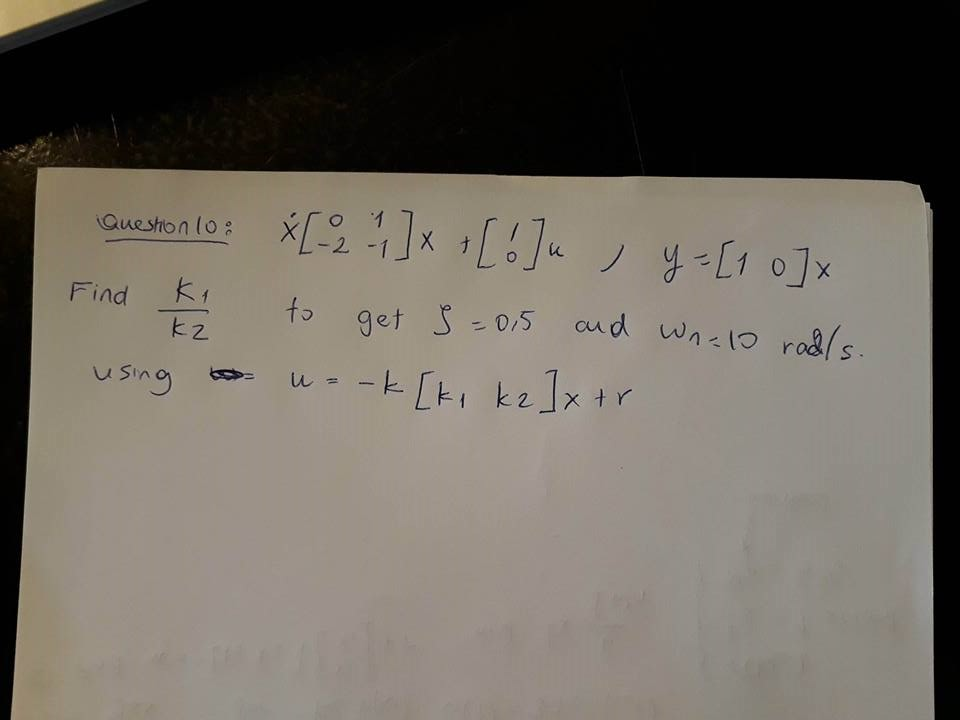 Question 10: ẋ[0 1 -2 -1]x + [1 0]u , y = [1 0]x
Find K1/K2 to get ζ = 0,5 and wn = 10 rad/s.
using u = -k [k1 k2]x + r